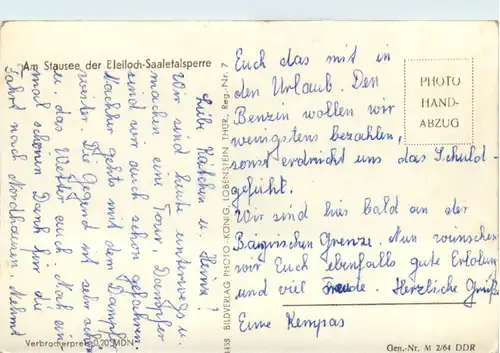 Am Stausee der Bleiloch-Saaletalsperre
Liebe Kätchen u. Heinz!
Wir sind heute unterwegs u.
machen eine Tour. Dampfer
sind wir auch schon gefahren.
Nachher gehts mit dem Dampfer
weiter. Die Gegend ist sehr schön
u. das Wetter auch. Noch ein
mal schönen Dank für die
Fahrt nach Nordhausen. Nehmt
Euch das mit in
den Urlaub. Den
Benzin wollen wir
wenigstens bezahlen,
sonst erdrückt uns das Schuld-
gefühl.
Wir sind hier bald an der
Bayrischen Grenze. Nun wünschen
wir Euch ebenfalls gute Erholung
und viel Freude. Herzliche Grüße
Eure Kempas
PHOTO
HAND-
ABZUG
BILDVERLAG PHOTO-KÖNIG, LOBENSTEIN THÜR. Reg.-Nr. 7
Verbraucherpreis 0,20 MDN
Gen.-Nr. M 2/64 DDR